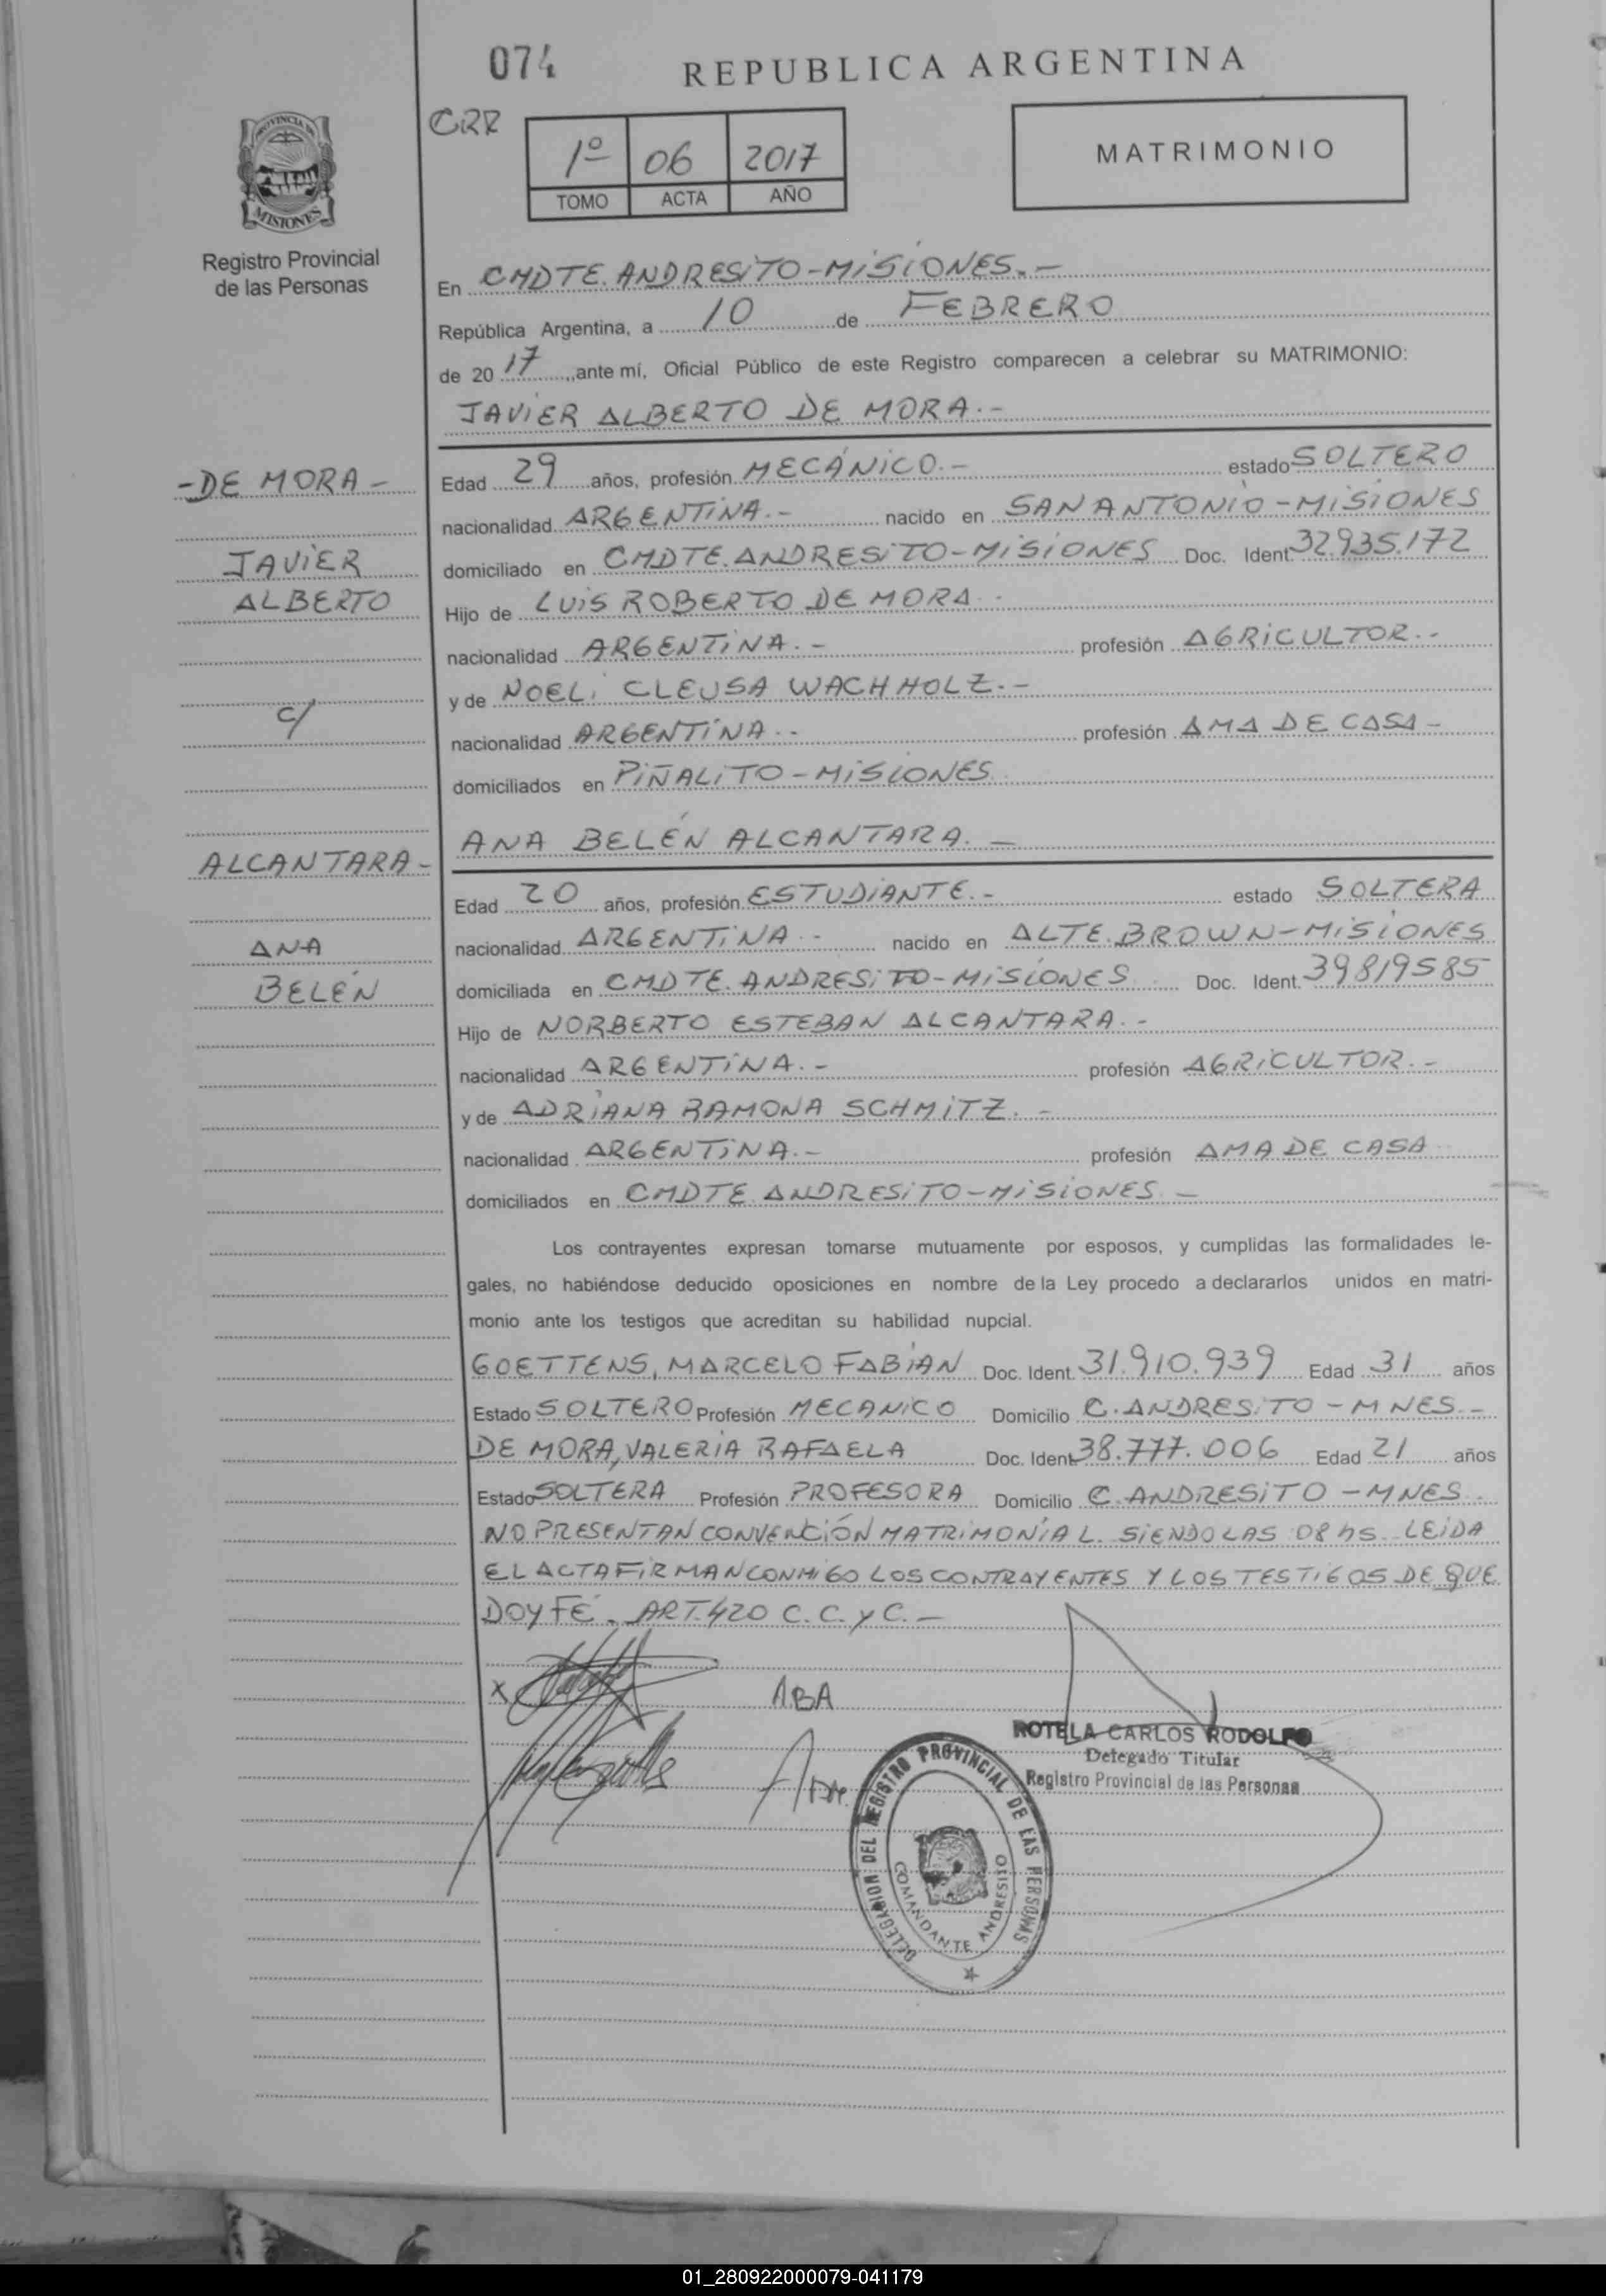 074
REPUBLICA ARGENTINA
CRR
1º 06 2017
TOMO ACTA AÑO
MATRIMONIO
PROVINCIA DE
MISIONES
Registro Provincial
de las Personas
En CMDTE. ANDRESITO - MISIONES. -
República Argentina, a 10 de FEBRERO
de 20 17, ante mí, Oficial Público de este Registro comparecen a celebrar su MATRIMONIO:
JAVIER ALBERTO DE MORA. -
- DE MORA -
JAVIER
ALBERTO
C/
ALCANTARA -
ANA
BELÉN
Edad 29 años, profesión MECÁNICO. - estado SOLTERO
nacionalidad ARGENTINA. - nacido en SAN ANTONIO - MISIONES
domiciliado en CMDTE. ANDRESITO - MISIONES Doc. Ident. 32.935.172
Hijo de LUIS ROBERTO DE MORA. -
nacionalidad ARGENTINA. - profesión AGRICULTOR. -
y de NOELI CLEUSA WACHHOLZ. -
nacionalidad ARGENTINA. - profesión AMA DE CASA -
domiciliados en PIÑALITO - MISIONES
ANA BELÉN ALCANTARA. -
Edad 20 años, profesión ESTUDIANTE. - estado SOLTERA
nacionalidad ARGENTINA. - nacido en ALTE. BROWN - MISIONES
domiciliada en CMDTE. ANDRESITO - MISIONES Doc. Ident. 39819585
Hijo de NORBERTO ESTEBAN ALCANTARA. -
nacionalidad ARGENTINA. - profesión AGRICULTOR. -
y de ADRIANA RAMONA SCHMITZ. -
nacionalidad ARGENTINA. - profesión AMA DE CASA
domiciliados en CMDTE. ANDRESITO - MISIONES -
Los contrayentes expresan tomarse mutuamente por esposos, y cumplidas las formalidades le-
gales, no habiéndose deducido oposiciones en nombre de la Ley procedo a declararlos unidos en matri-
monio ante los testigos que acreditan su habilidad nupcial.
GOETTENS, MARCELO FABIAN Doc. Ident. 31.910.939 Edad 31 años
Estado SOLTERO Profesión MECANICO Domicilio C. ANDRESITO - MNES -
DE MORA, VALERIA RAFAELA Doc. Ident. 38.777.006 Edad 21 años
Estado SOLTERA Profesión PROFESORA Domicilio C. ANDRESITO - MNES
NO PRESENTAN CONVENCIÓN MATRIMONIAL. SIENDO LAS 08 hs. LEIDA
EL ACTA FIRMAN CONMIGO LOS CONTRAYENTES Y LOS TESTIGOS DE QUE
DOY FÉ. ART. 420 C.C. y C. -
X
ABA
ROTELA CARLOS RODOLFO
Delegado Titular
Registro Provincial de las Personas
DELEGACION DEL REGISTRO PROVINCIAL DE LAS PERSONAS
COMANDANTE ANDRESITO
01_280922000079-041179